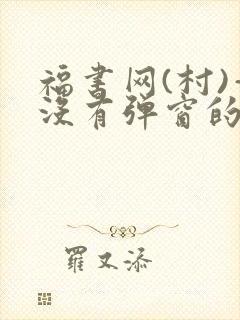 福書网(村)
沒有弹窗的
羅又添